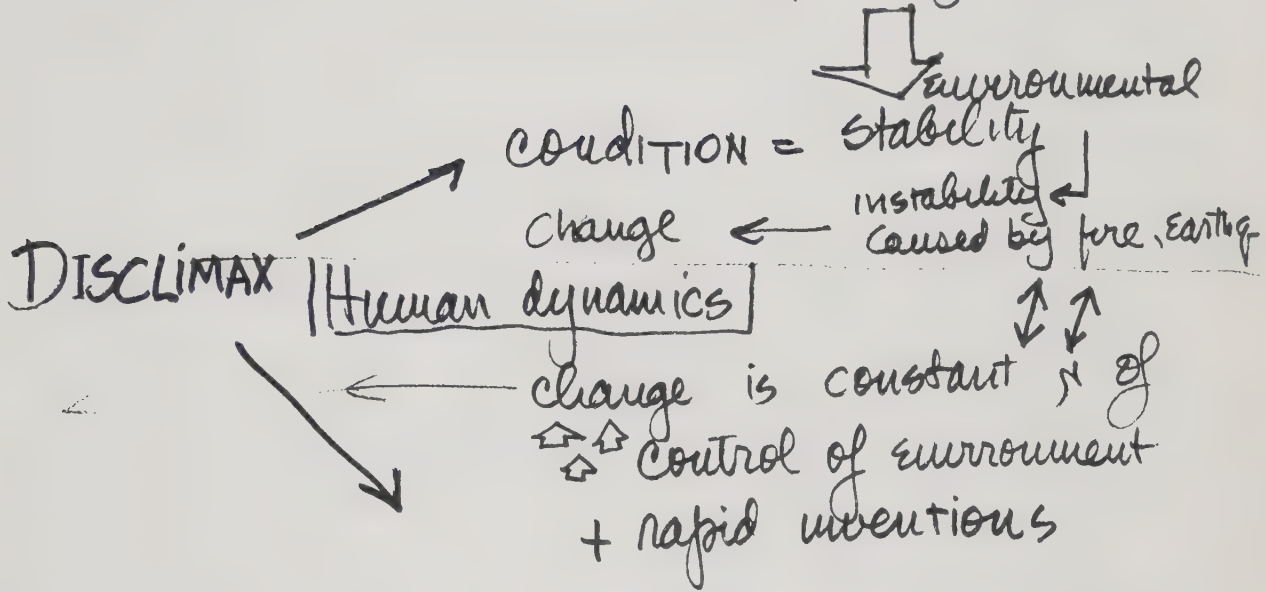 environmental
CONDITION = stability
instability
change caused by fire, Earthq
DISCLIMAX
Human dynamics
change is constant of
control of environment
+ rapid inventions